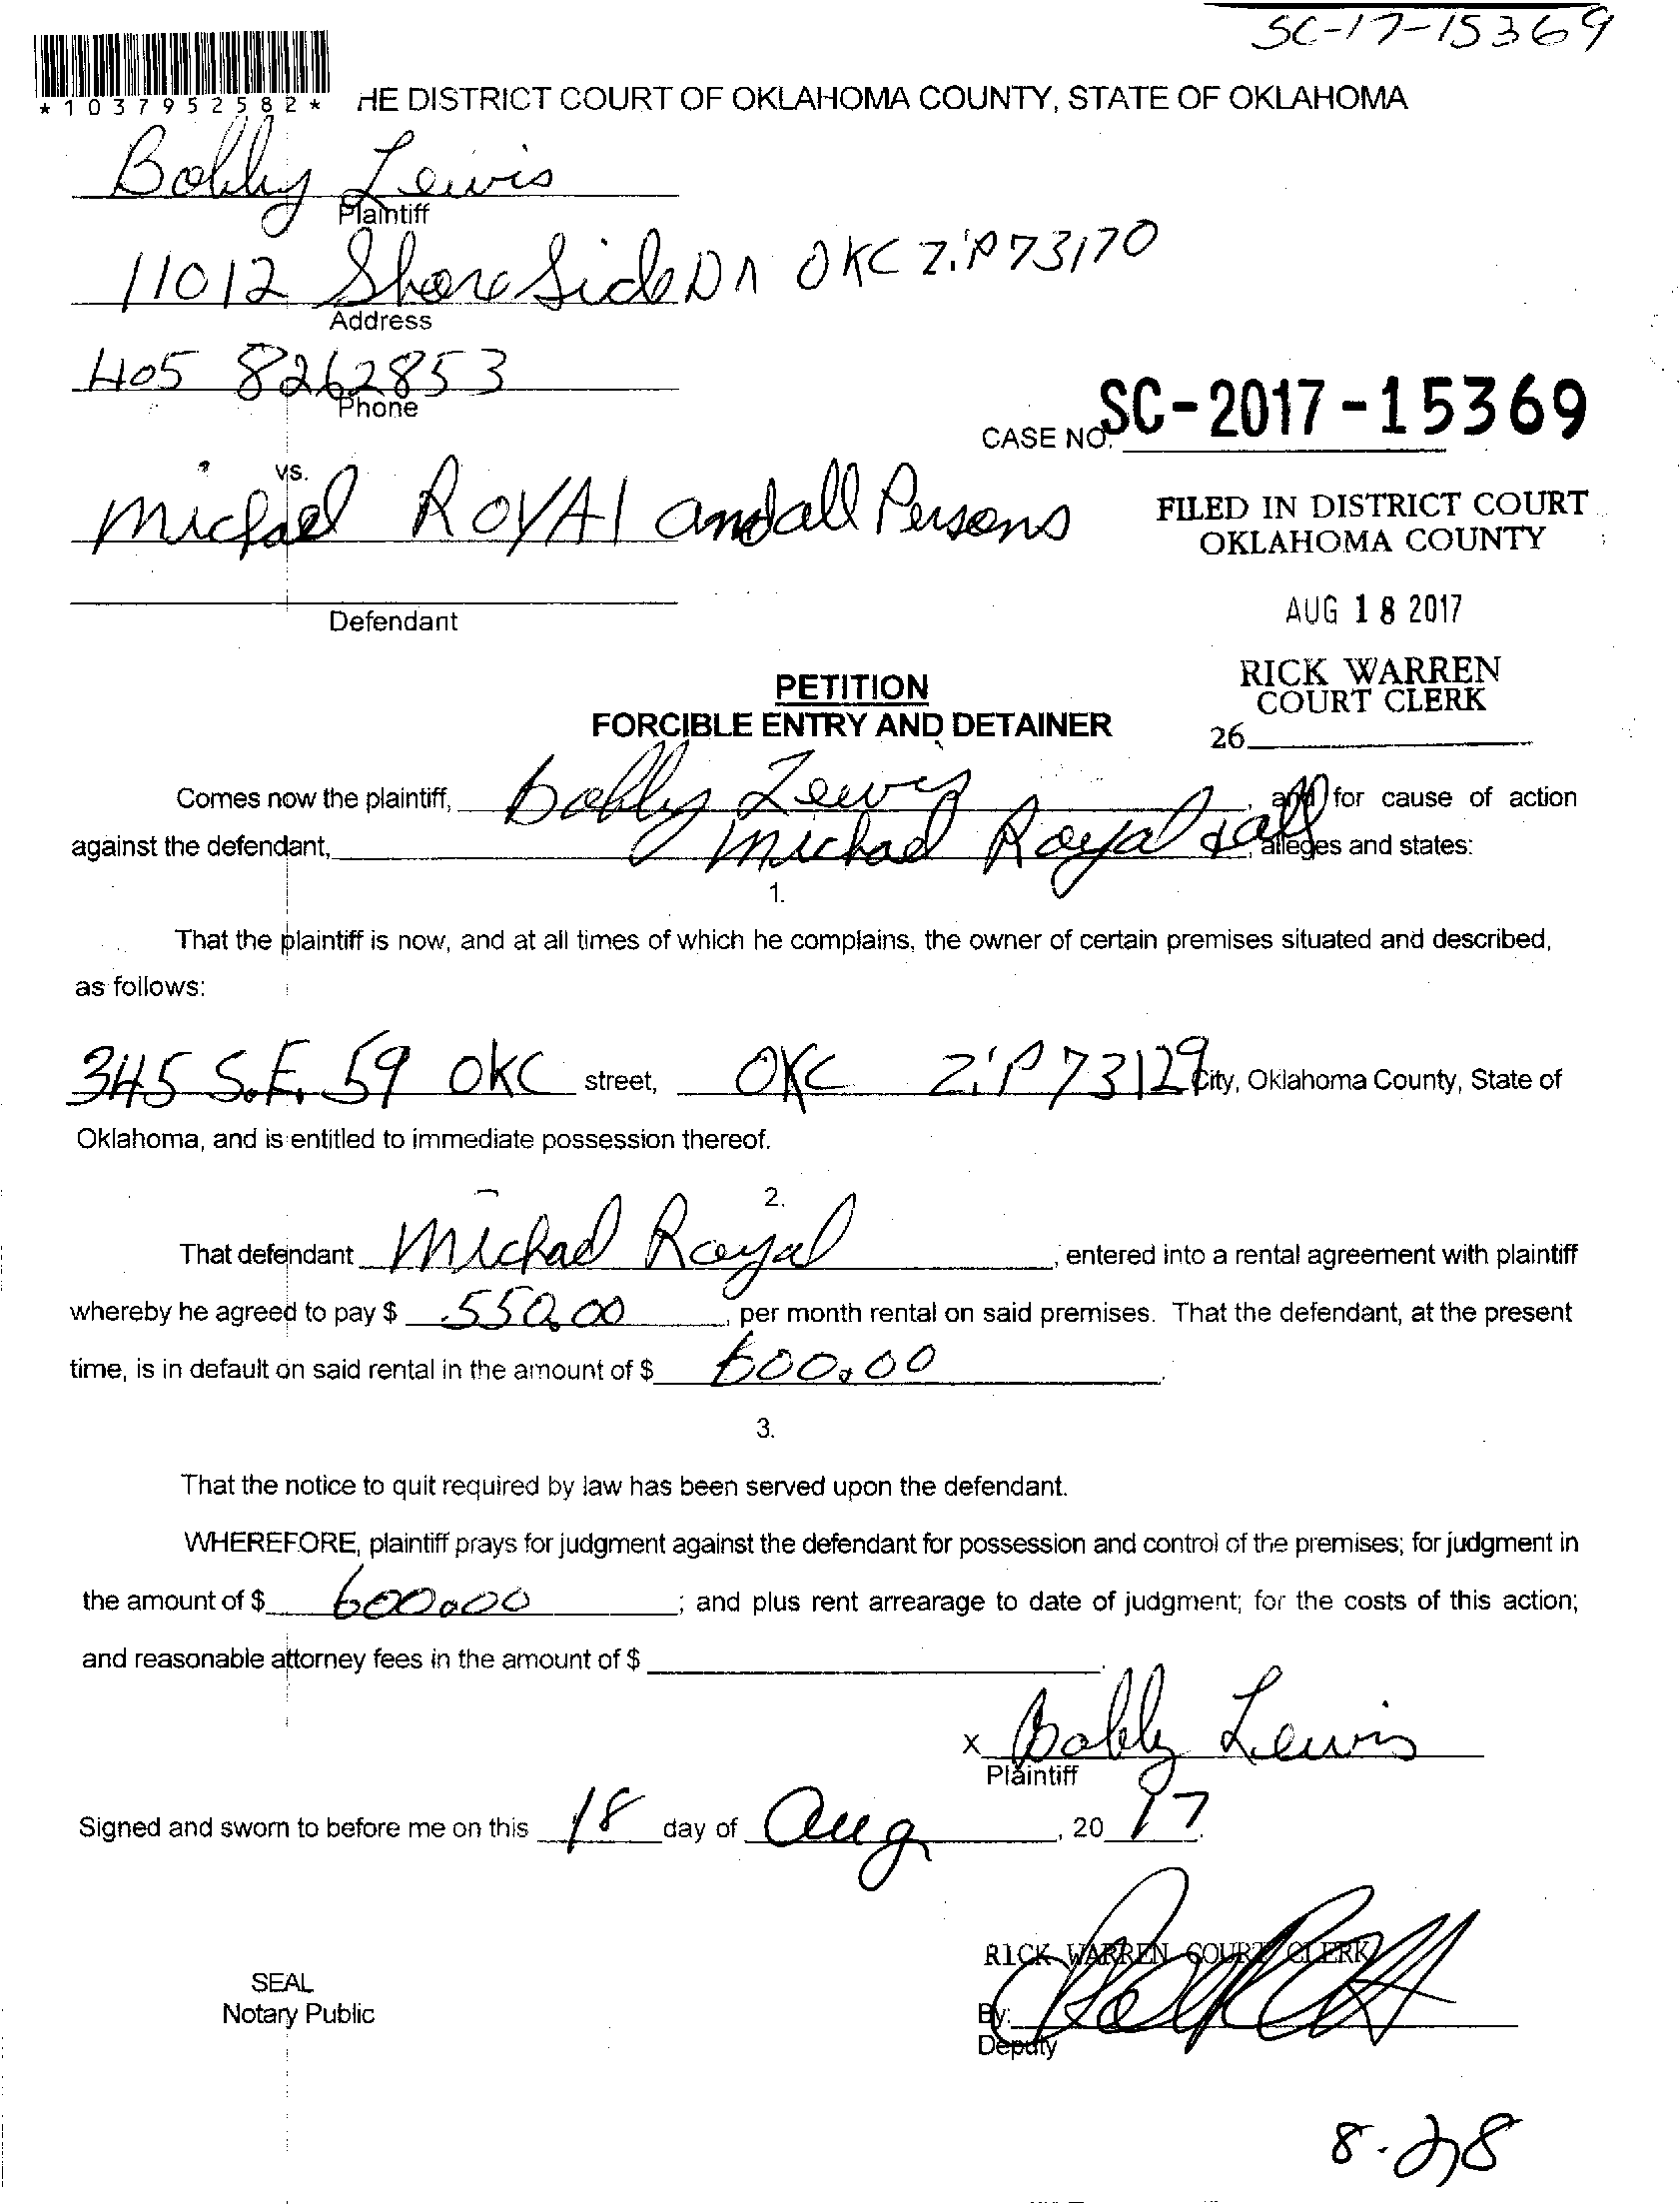 SC-17-15369
*1037952582*
HE DISTRICT COURT OF OKLAHOMA COUNTY, STATE OF OKLAHOMA
Bobby Lewis
Plaintiff
11012 Shore Side Dr OKC Zip 73170
Address
405 8262853
Phone
CASE NO. SC-2017-15369
vs.
Michael ROYAl and all Persons
FILED IN DISTRICT COURT
OKLAHOMA COUNTY
Defendant
AUG 18 2017
RICK WARREN
COURT CLERK
26
PETITION
FORCIBLE ENTRY AND DETAINER
Comes now the plaintiff, Bobby Lewis, and for cause of action
against the defendant, Michael Royal & all, alleges and states:
1.
That the plaintiff is now, and at all times of which he complains, the owner of certain premises situated and described,
as follows:
345 S.E. 59 OKC street, OKC Zip 73129 City, Oklahoma County, State of
Oklahoma, and is entitled to immediate possession thereof.
2.
That defendant Michael Royal, entered into a rental agreement with plaintiff
whereby he agreed to pay $ 550.00, per month rental on said premises. That the defendant, at the present
time, is in default on said rental in the amount of $ 600.00.
3.
That the notice to quit required by law has been served upon the defendant.
WHEREFORE, plaintiff prays for judgment against the defendant for possession and control of the premises; for judgment in
the amount of $ 600.00; and plus rent arrearage to date of judgment; for the costs of this action;
and reasonable attorney fees in the amount of $
x Bobby Lewis
Plaintiff
Signed and sworn to before me on this 18 day of Aug, 20 17.
RICK WARREN COURT CLERK
SEAL
Notary Public
By:
Deputy
8-28